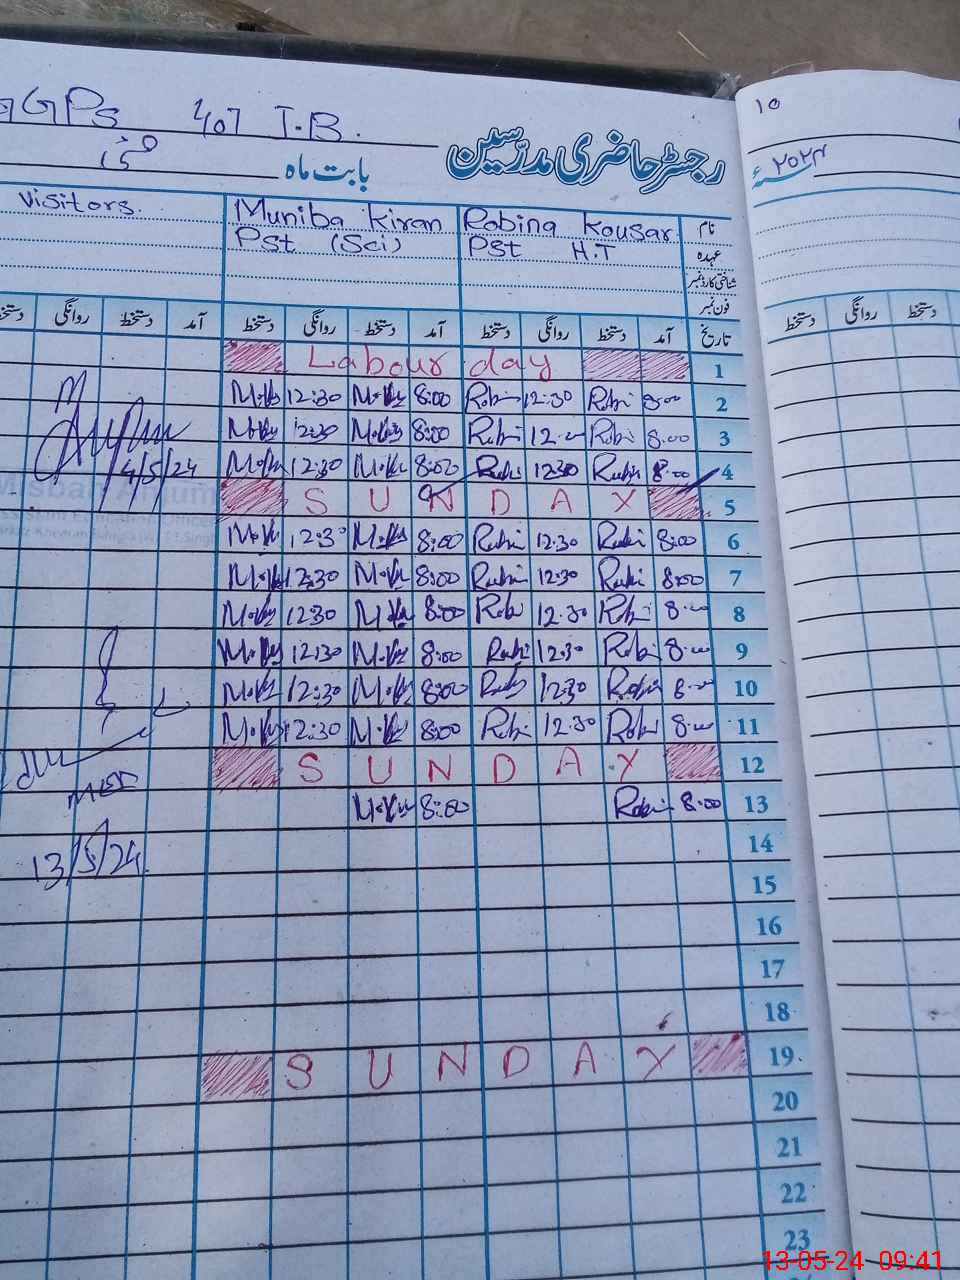 GGPs 407 J.B.
10
رجسٹر حاضری مدرّسین
بابت ماہ مئی
۲۰۲۴ء
Visitors. Muniba Kiran Robina Kousar نام
Pst (Sci) PST H.T عہدہ
شناختی کارڈ نمبر
فون نمبر
تاریخ آمد دستخط روانگی دستخط آمد دستخط روانگی دستخط آمد دستخط روانگی دستخط
دستخط روانگی دستخط
Labour day 1
12:30 8:00 12:30 8:00 2
12:30 8:00 12:00 8:00 3
12:30 8:00 12:30 8:00 4
4/5/24
SUNDAY 5
Misbah Anjum
12:30 8:00 12:30 8:00 6
12:30 8:00 12:30 8:00 7
12:30 8:00 12:30 8:00 8
12:30 8:00 12:30 8:00 9
12:30 8:00 12:30 8:00 10
12:30 8:00 12:30 8:00 11
SUNDAY 12
8:00 8:00 13
13/5/24
14
15
16
17
18
SUNDAY 19
20
21
22
23
13-05-24 09:41